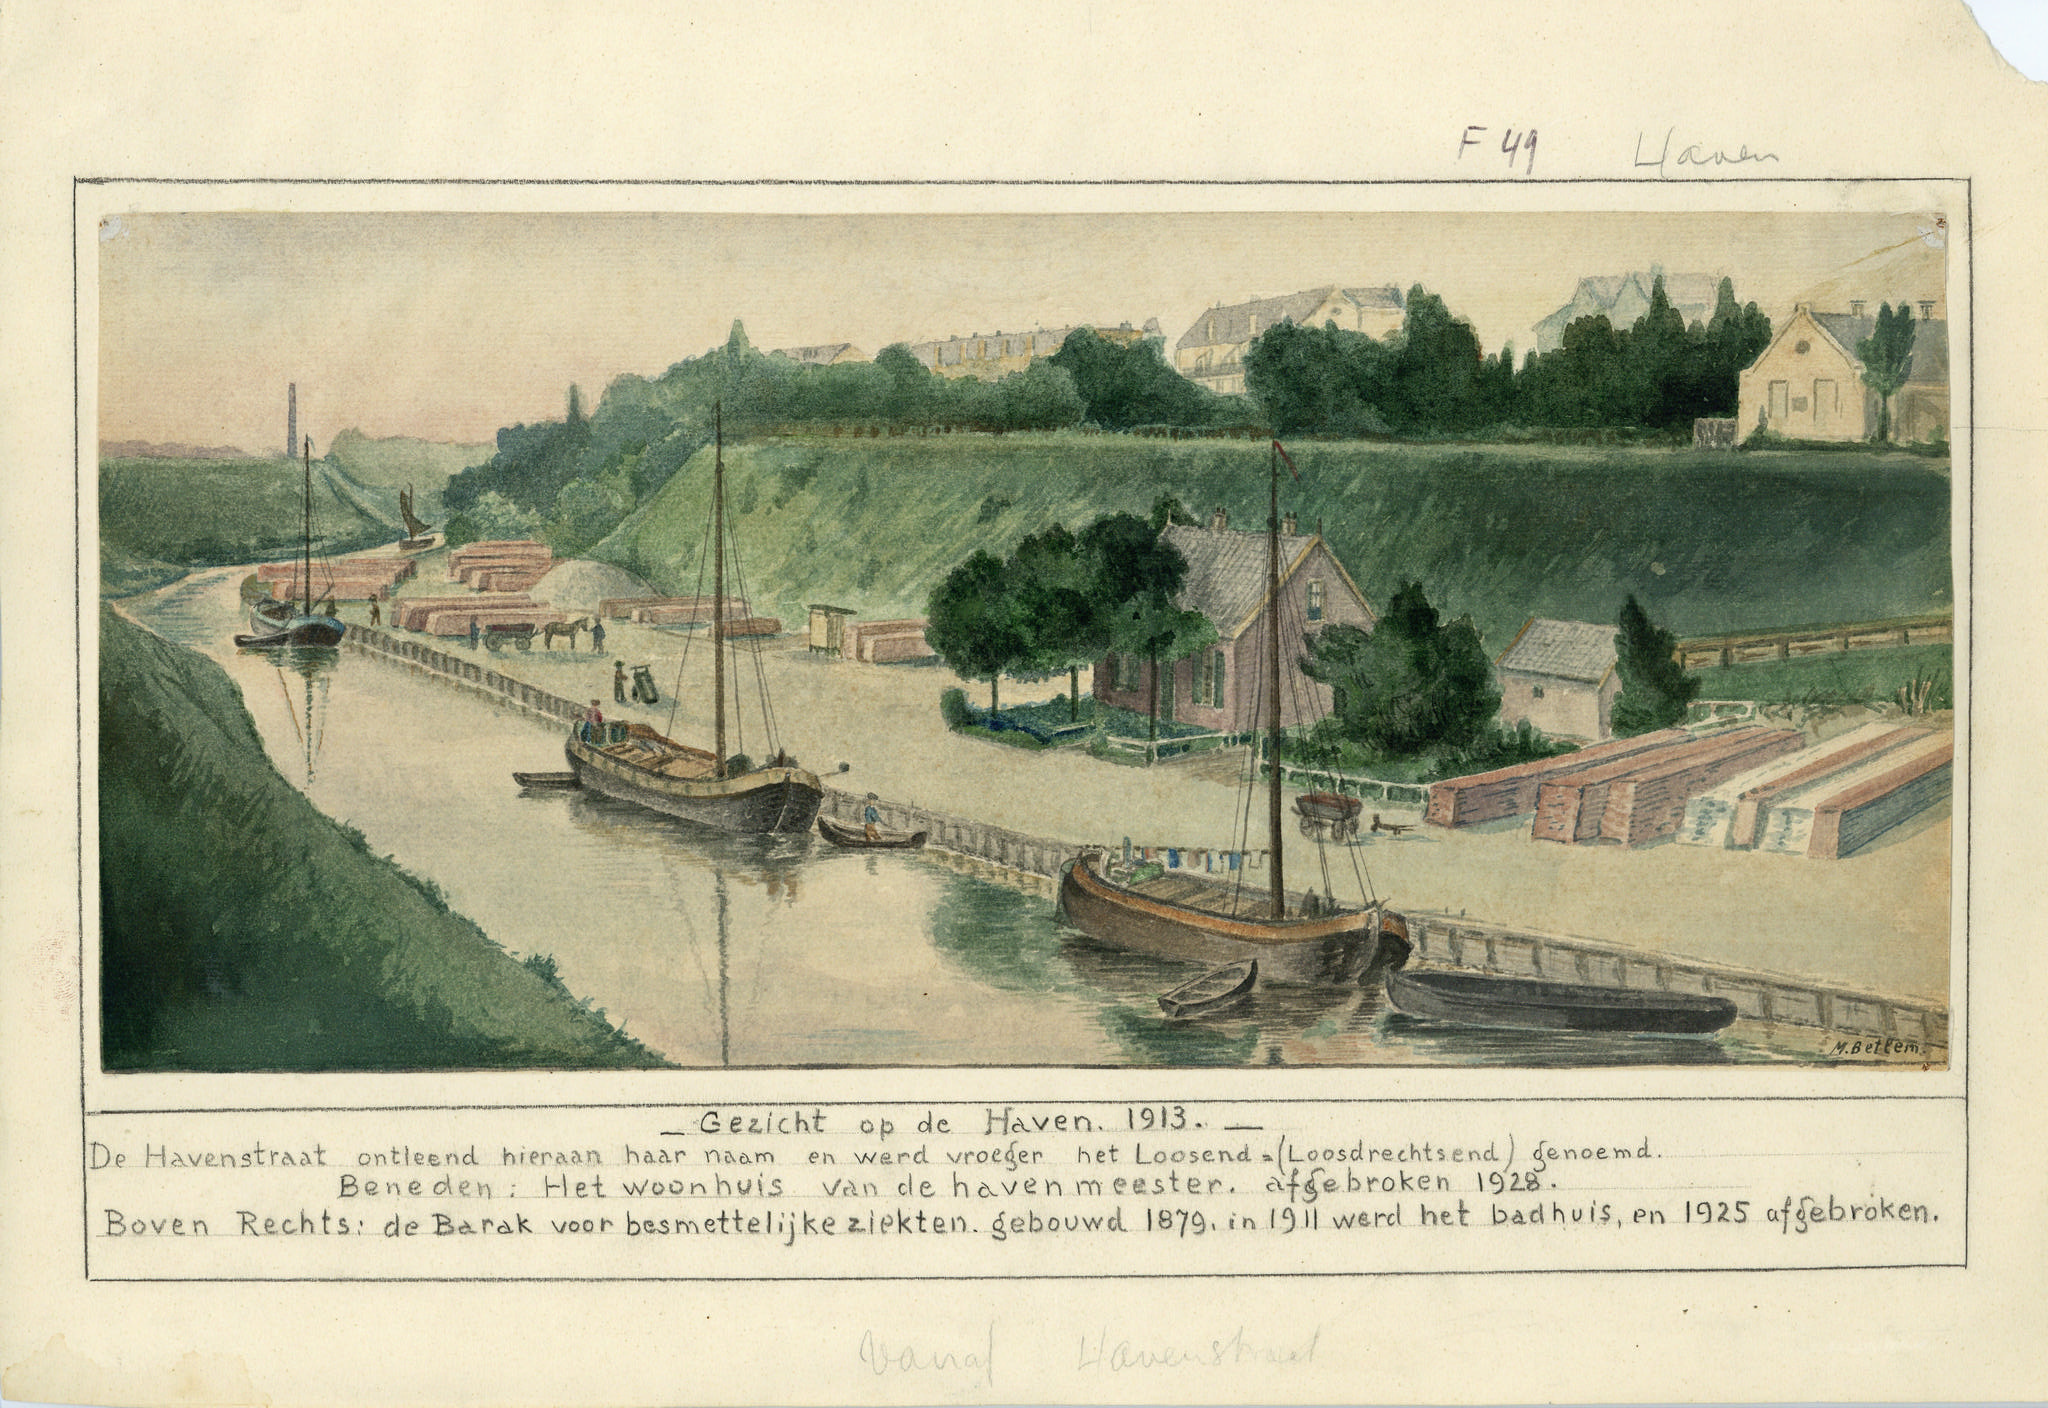 F 49 Haven
M. Betlem.
— Gezicht op de Haven. 1913. —
De Havenstraat ontleend hieraan haar naam en werd vroeger het Loosend = (Loosdrechtsend) genoemd.
Beneden: Het woonhuis van de havenmeester. afgebroken 1928.
Boven Rechts: de Barak voor besmettelijke ziekten. gebouwd 1879. in 1911 werd het badhuis, en 1925 afgebroken.
Vanaf Havenstraat